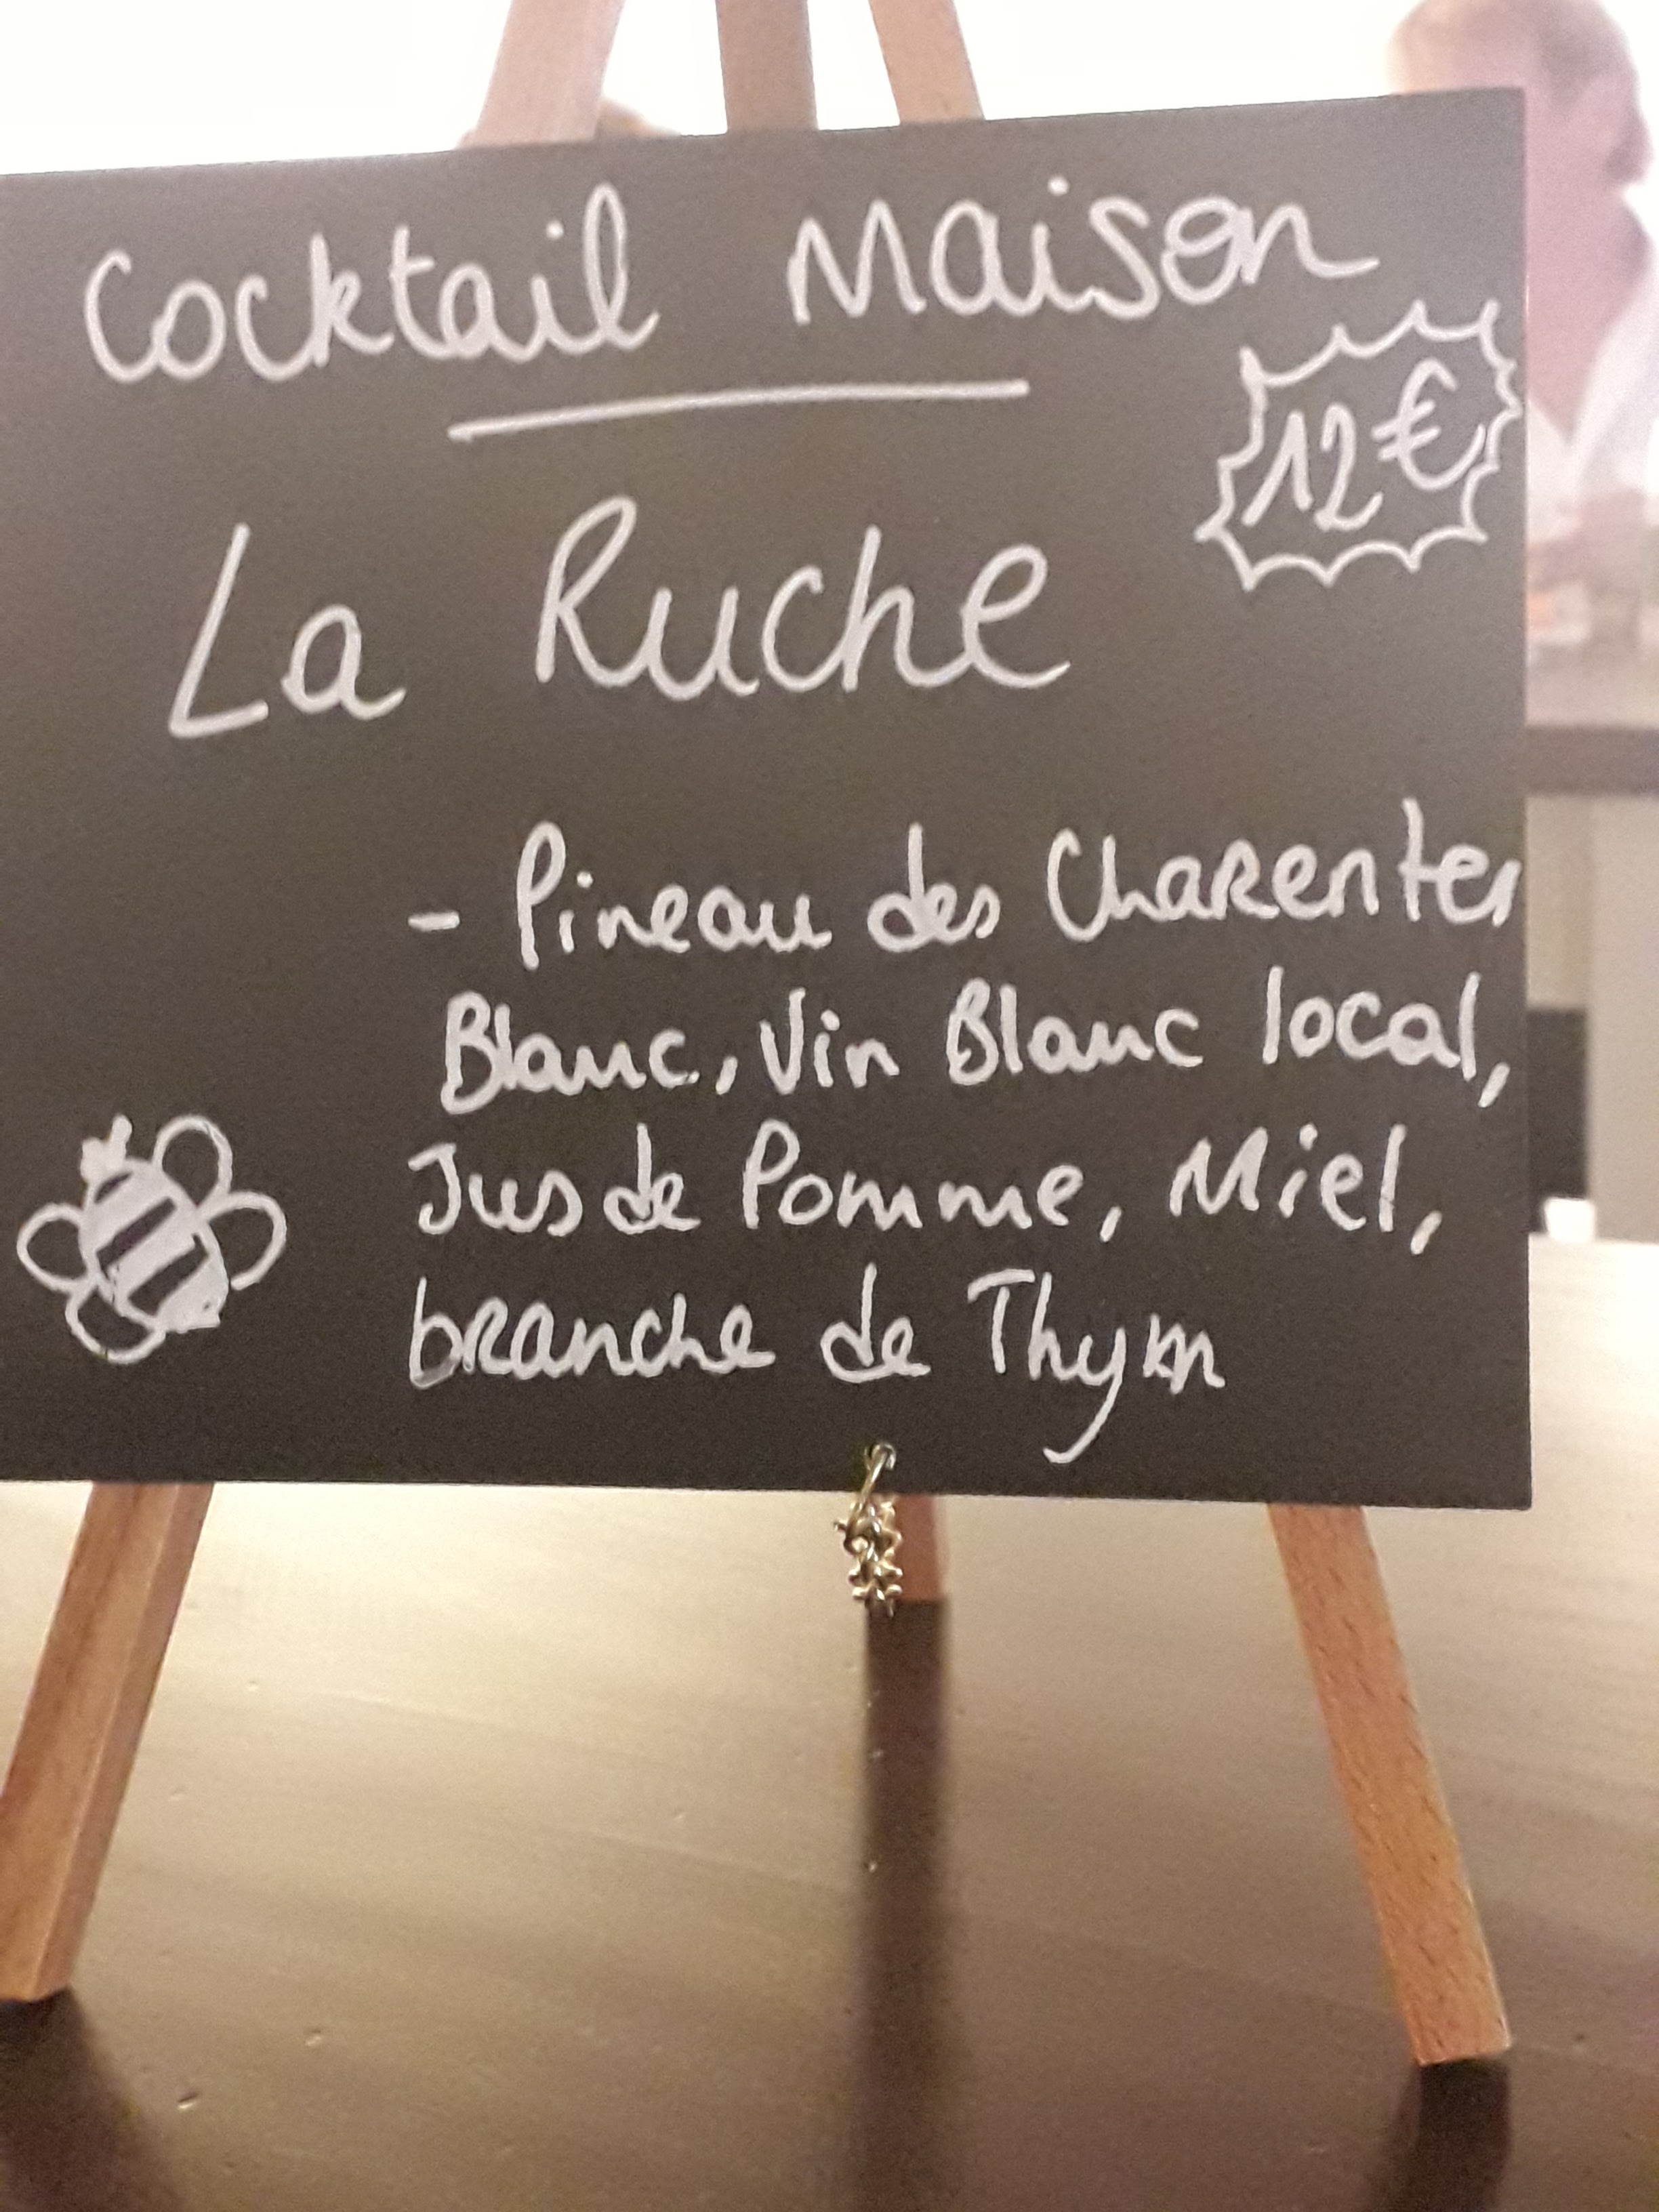 Cocktail Maison
12€
La Ruche
- Pineau des Charentes
Blanc, Vin Blanc local,
Jus de Pomme, Miel,
branche de Thym